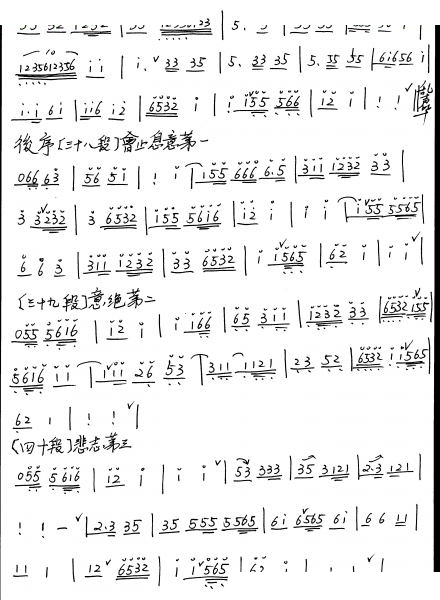 12356123
1235612356 i i | i. 33 35 | 5. 33 35 | 5. 55 55 | 616156 i
i·i 6i | ii6 i2 | 6532 i | i 155 566 | i2 i | ! !
後序〔三十八段〕會止息意第一
066 63 | 56 5i | ! i | 155 666 6·5 | 311 1232 33
3 3232 | 3 6532 | 155 5616 | i2 i | i i | 155 5565
6 6 3 | 311 1232 | 33 6532 | i 1565 | 62 i | i i
〔三十九段〕意绝第二
055 5616 | i2 i | i i66 | 65 311 | 1232 33 | 6532 155
5616 ii | i ii 26 53 | 311 1121 | 23 52 | 6532 i 1565
62 i | ! !
〔四十段〕悲志第三
055 5616 | i2 i | i i | 53 333 | 35 3121 | 2·3 121
! ! – | 2·3 35 | 35 555 5565 | 6i 6565 6i | 66 11
11 1 | 12 6532 | i 1565